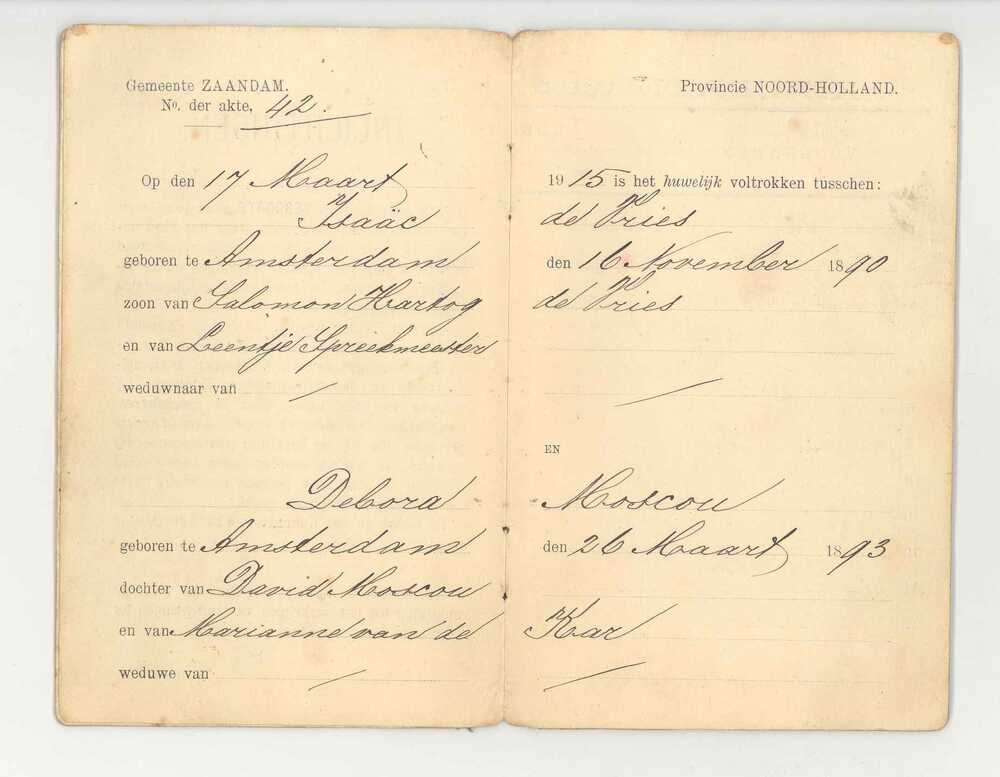 Gemeente ZAANDAM. Provincie NOORD-HOLLAND.
No. der akte, 42.
Op den 17 Maart 1915 is het huwelijk voltrokken tusschen:
Isaäc de Vries
geboren te Amsterdam den 16 November 1890
zoon van Salomon Hartog de Vries
en van Leentje Spreekmeester
weduwnaar van —
EN
Debora Moscou
geboren te Amsterdam den 26 Maart 1893
dochter van David Moscou
en van Marianne van de Kar
weduwe van —